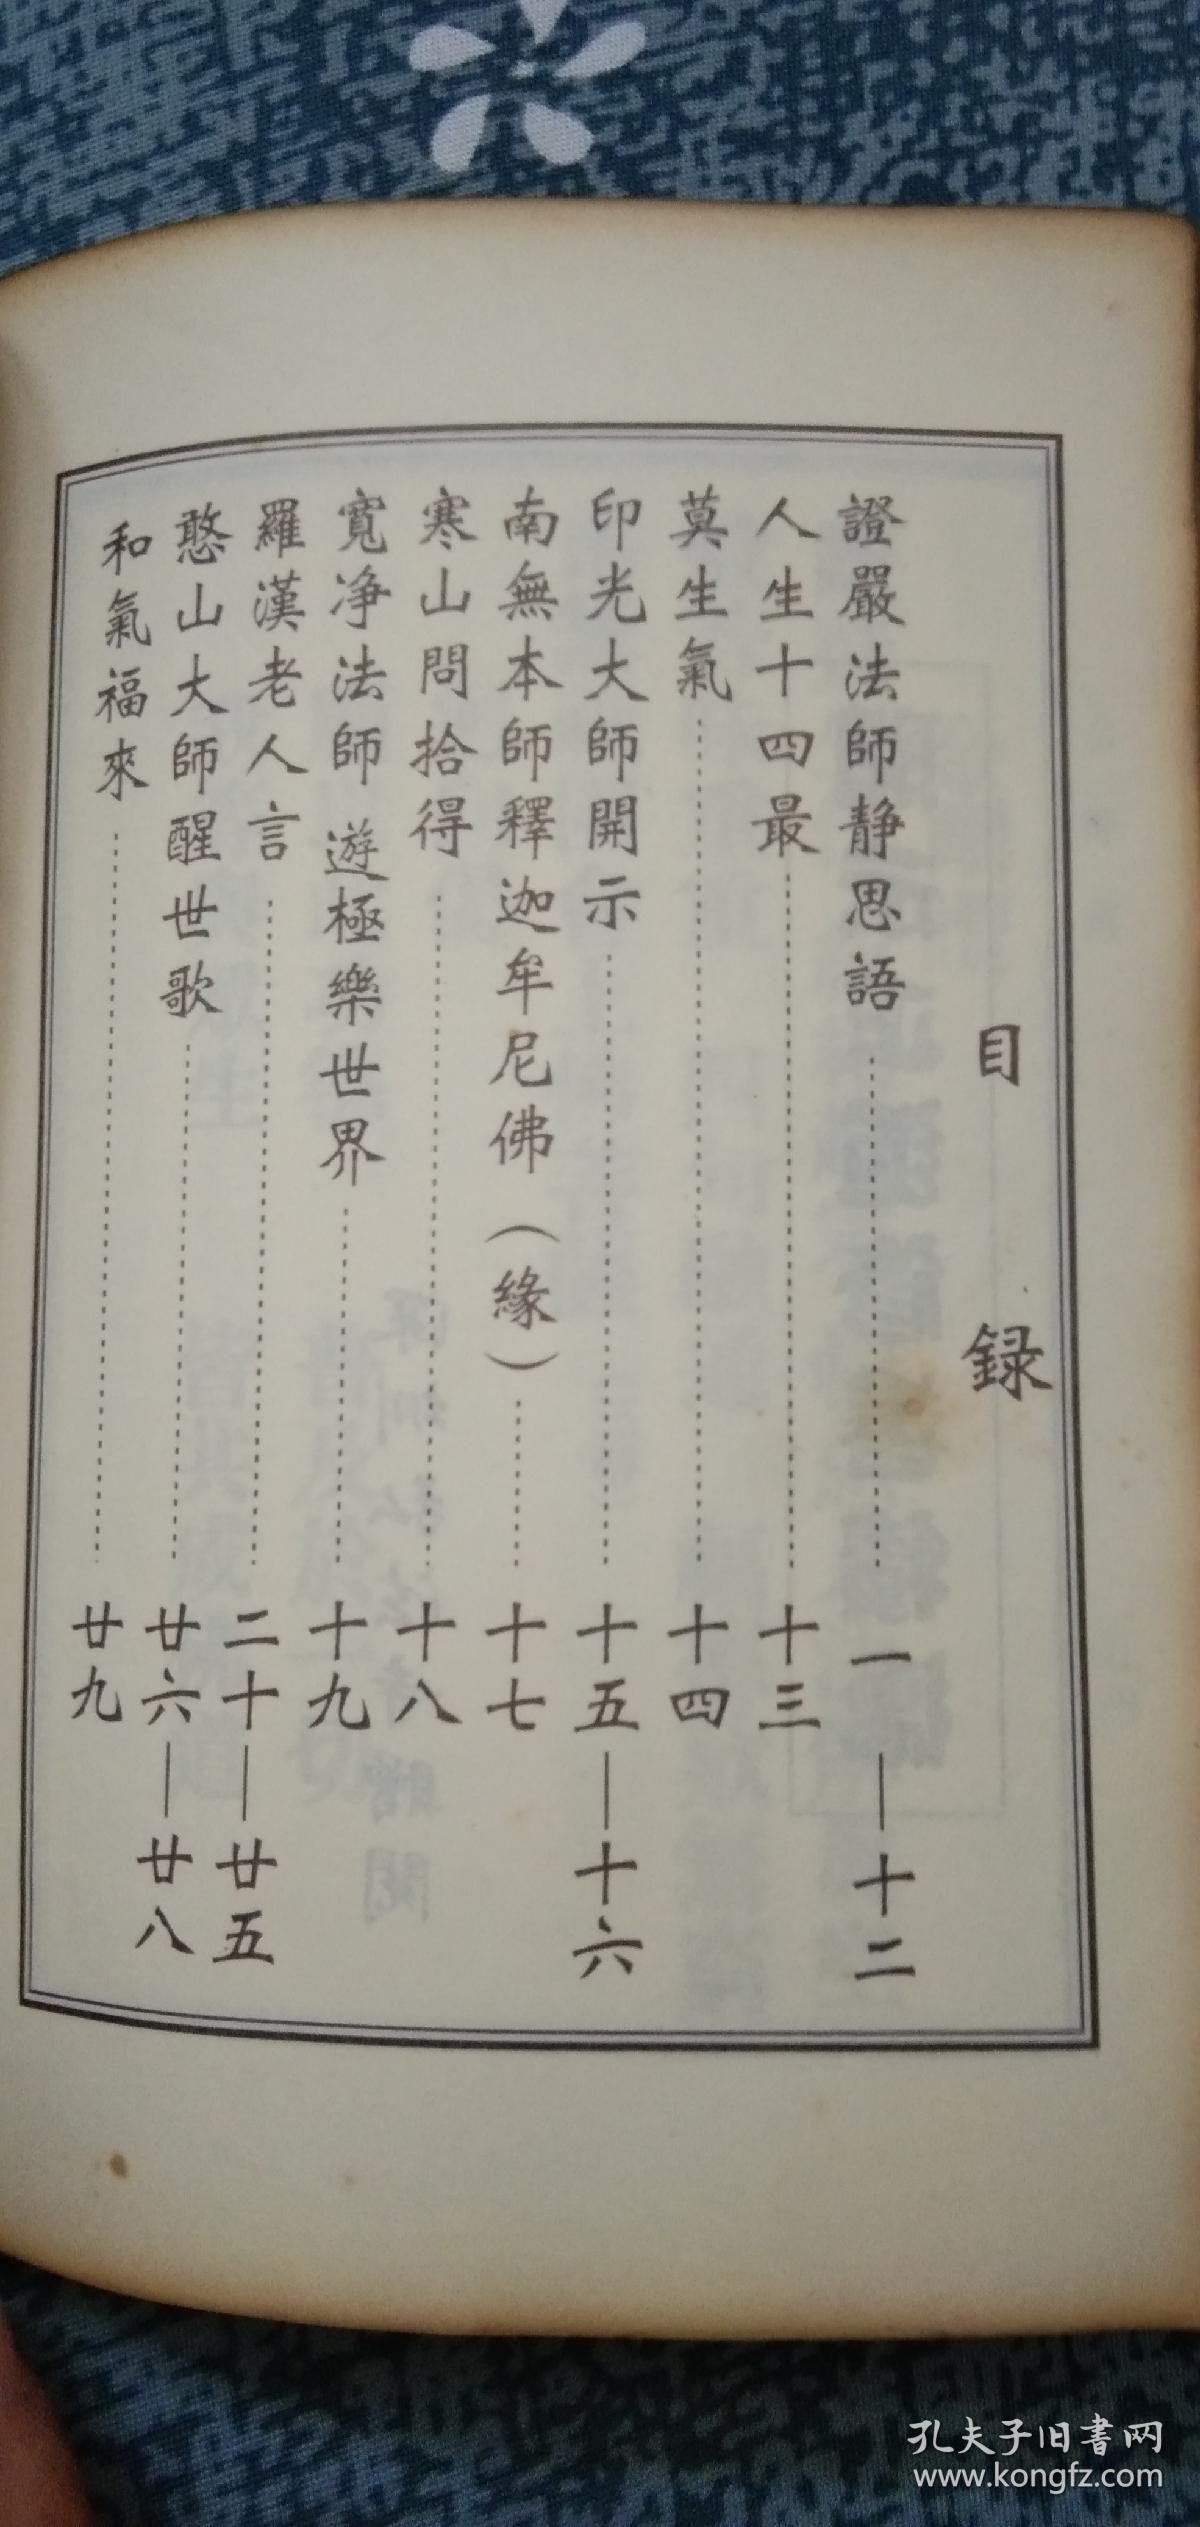 目録
證嚴法師静思語 一——十二
人生十四最 十三
莫生氣 十四
印光大師開示 十五——十六
南無本師釋迦牟尼佛（緣） 十七
寒山問拾得 十八
寬净法師 遊極樂世界 十九
羅漢老人言 二十——廿五
憨山大師醒世歌 廿六——廿八
和氣福來 廿九
孔夫子旧书网
www.kongfz.com